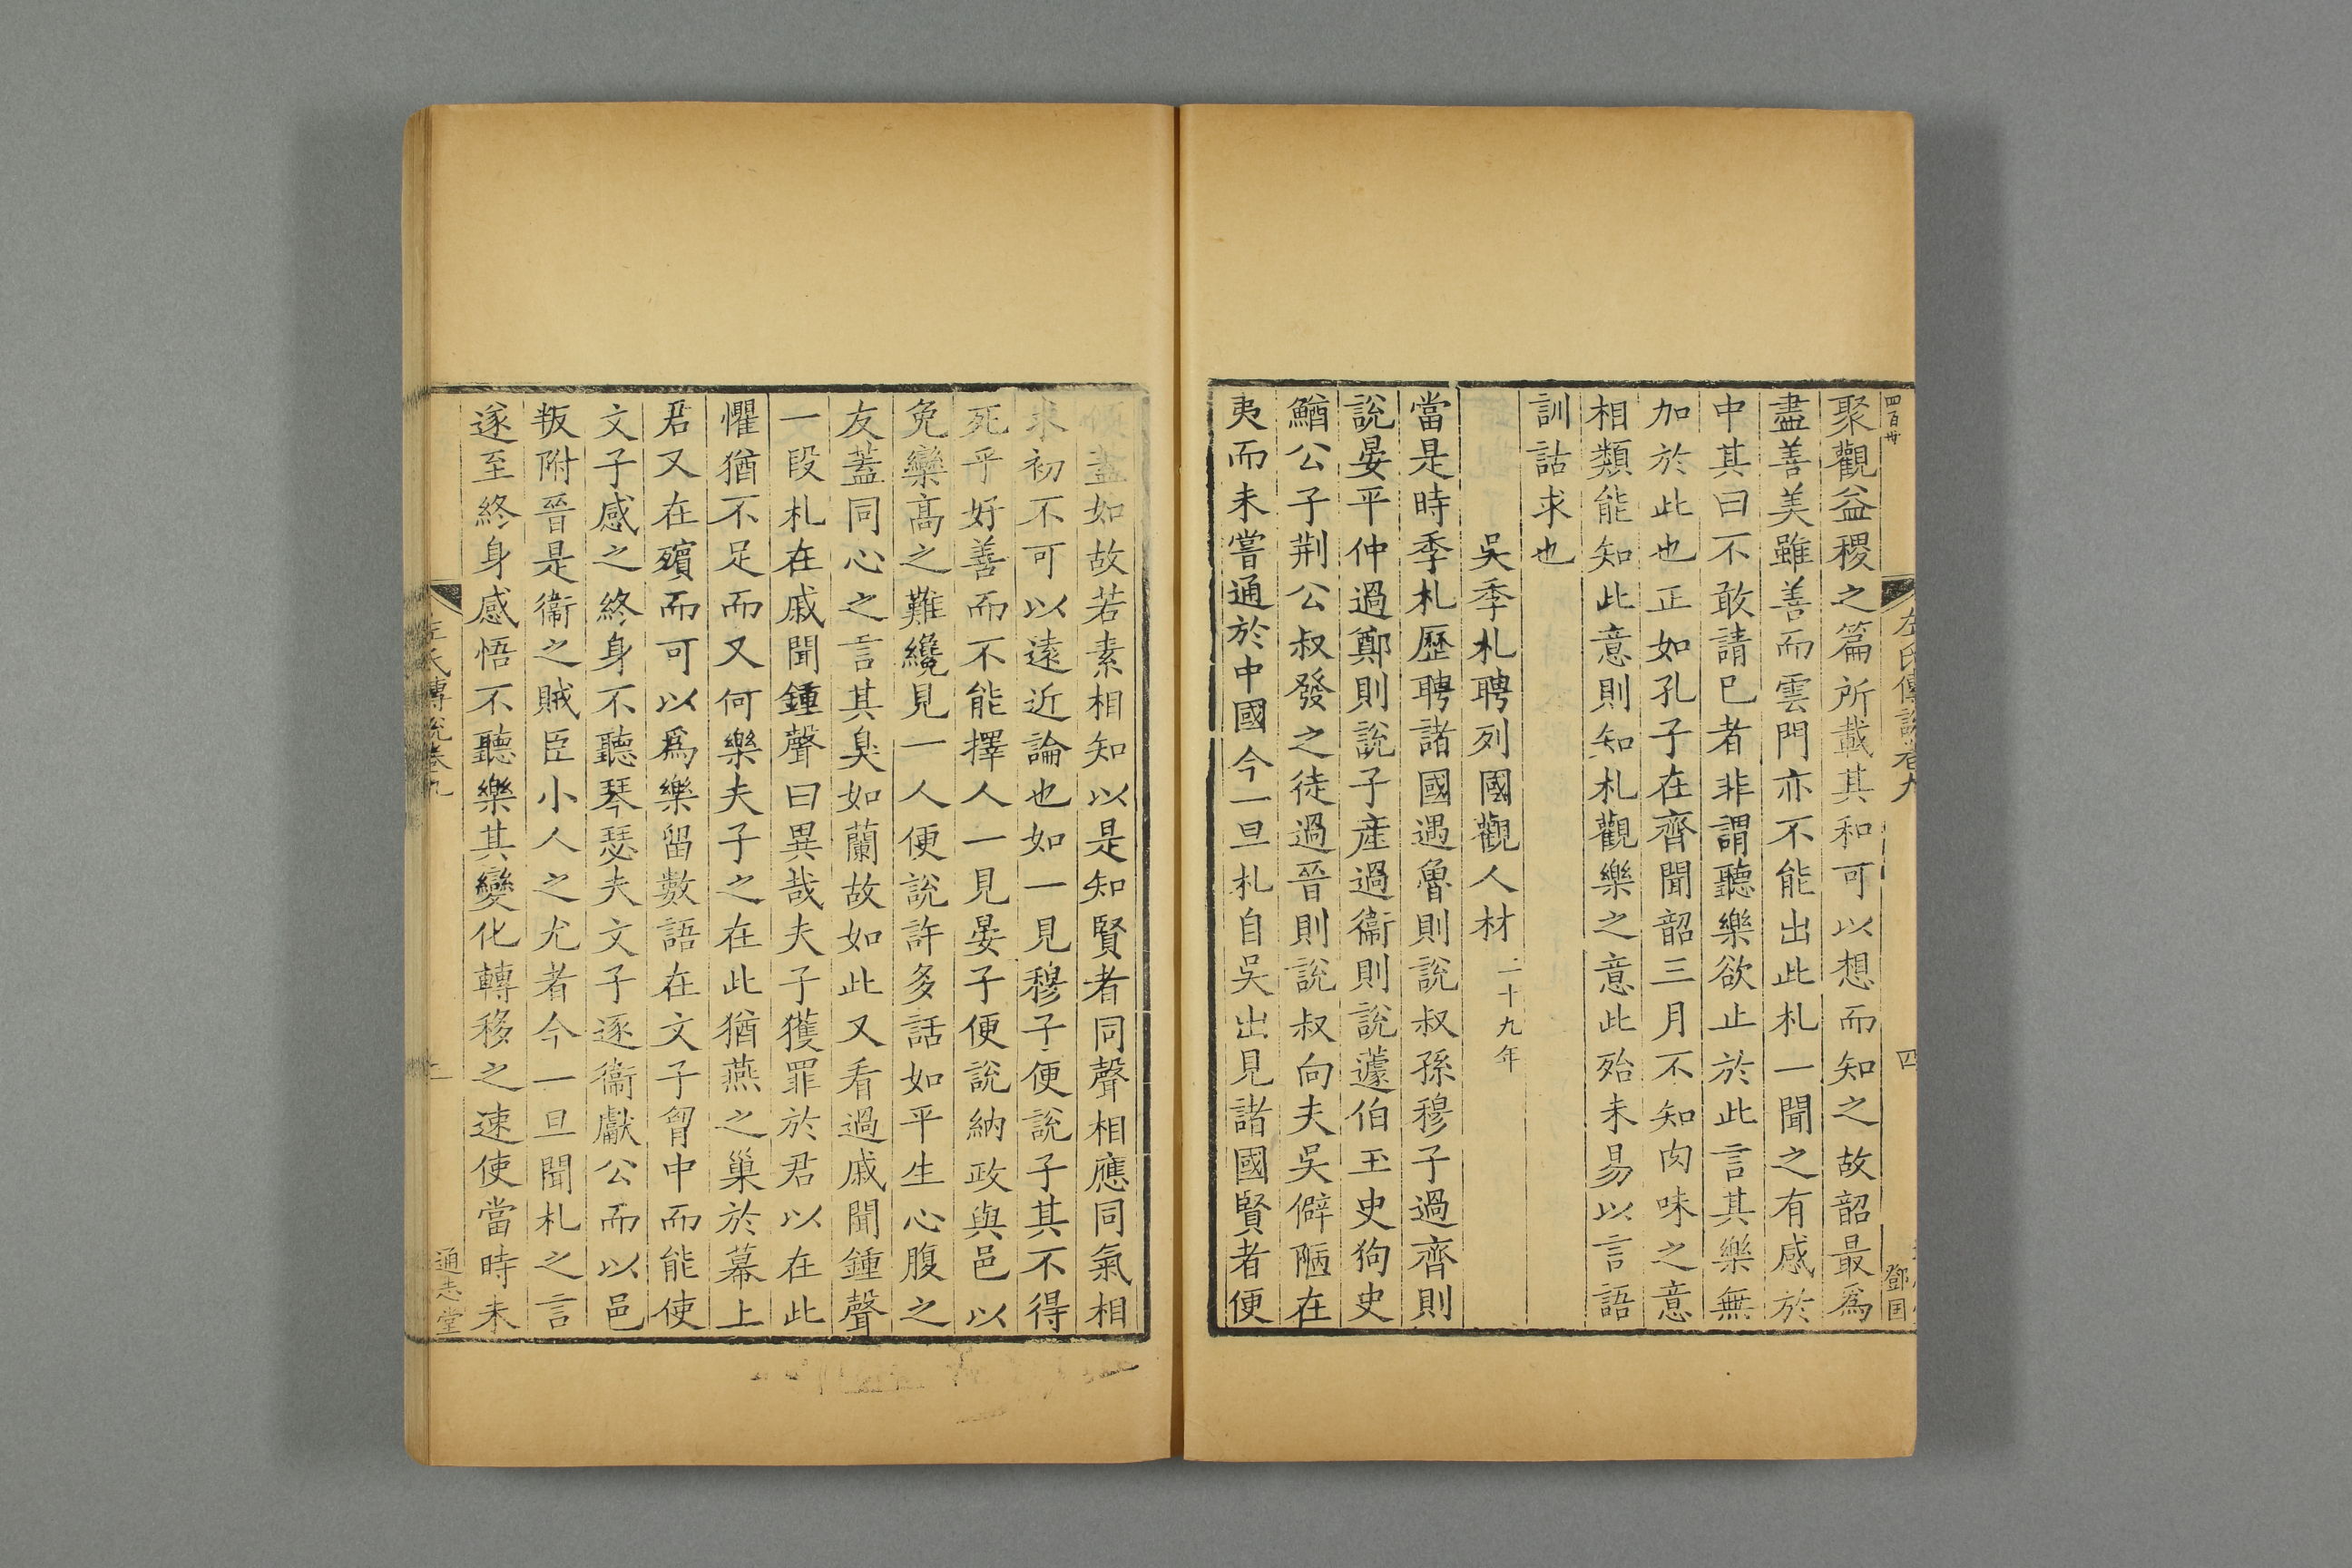 四百卅
左氏傳說卷九
四
鄧国
聚觀益稷之篇所載其和可以想而知之故韶最爲
盡善美雖善而雲門亦不能出此札一聞之有感於
中其曰不敢請巳者非謂聽樂欲止於此言其樂無
加於此也正如孔子在齊聞韶三月不知肉味之意
相類能知此意則知札觀樂之意此殆未易以言語
訓詁求也
吳季札聘列國觀人材二十九年
當是時季札歷聘諸國遇魯則說叔孫穆子過齊則
說晏平仲過鄭則說子產過衞則說蘧伯玉史狗史
鰌公子荆公叔發之徒過晉則說叔向夫吳僻陋在
夷而未嘗通於中國今一旦札自吳出見諸國賢者便
傾盖如故若素相知以是知賢者同聲相應同氣相
求初不可以遠近論也如一見穆子便說子其不得
死乎好善而不能擇人一見晏子便說納政與邑以
免欒高之難纔見一人便說許多話如平生心腹之
友蓋同心之言其臭如蘭故如此又看過戚聞鍾聲
一段札在戚聞鍾聲曰異哉夫子獲罪於君以在此
懼猶不足而又何樂夫子之在此猶燕之巢於幕上
君又在殯而可以爲樂留數語在文子胷中而能使
文子感之終身不聽琴瑟夫文子逐衞獻公而以邑
叛附晉是衞之賊臣小人之尤者今一旦聞札之言
遂至終身感悟不聽樂其變化轉移之速使當時未
左氏傳說卷九
通志堂